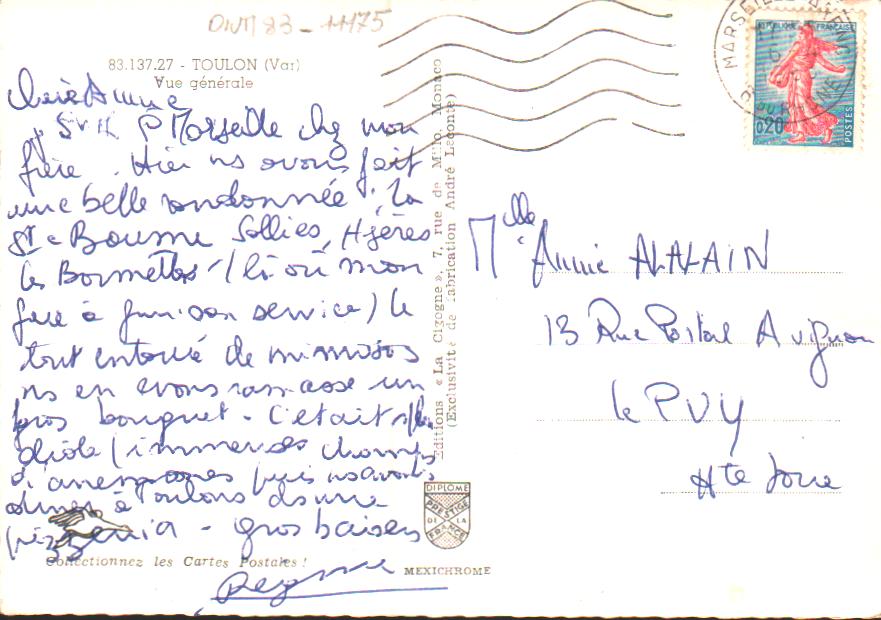 83.137.27 - TOULON (Var)
Vue générale
Chère Annie
Marseille chez mon
frère. Hier ns avons fait
une belle randonnée : la
Ste Baume Solliès, Hyères
les Bormettes (là où mon
frère a fini son service) le
tout entouré de mimosas
ns en avons ramassé un
gros bouquet - C'était
dide (immenses champs
d'anemones puis ns avons
diner à Toulon ds une
pizzeria - gros baisers
Collectionnez les Cartes Postales !
Editions « La Cigogne », 7, rue de Millo, Monaco
(Exclusivité de fabrication André Leconte)
DIPLOME
PRESTIGE
DE LA
FRANCE
MEXICHROME
REPUBLIQUE FRANÇAISE
0,20
POSTES
MARSEILLE
Mlle Annie ALALAIN
13 Rue Portail Avignon
Le PUY
Hte Loire